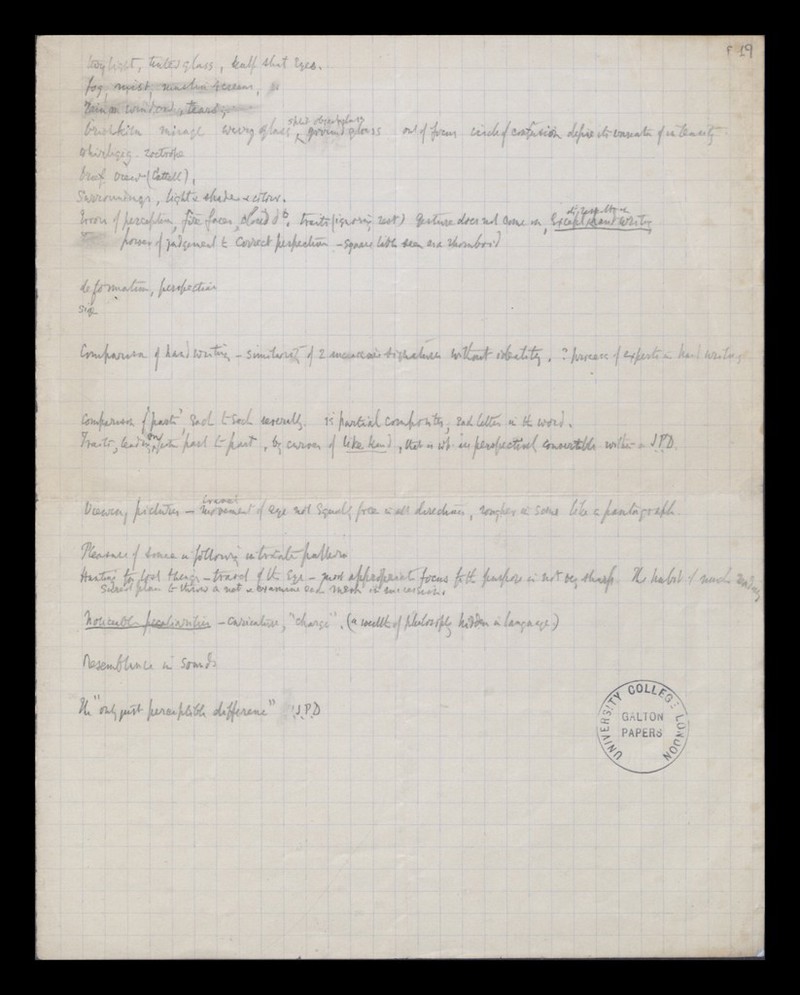 F 19
half shut eyes.
fog, mist, muslin screen,
Rain on window, tears,
mirage wavy glass ground glass out of focus circle of confusion
whirligig. zoetrope
brief view (Cattell),
Surroundings, light & shade & colour.
Errors of perception, fire faces, cloud do. traits (ignoring rest) gesture does not come in, Except handwriting
power of judgement to correct perspective – square table seen as a rhomboid
deformation, perspective
size
Comparison of hand writing – similarity of 2 signatures without identity. ? process of experts in hand writing
Comparison of "parts" each to each severally. is partial composites, 2nd letter in the word.
Traits, part to part, by curves of like kind, that is wh. are perspectively convertible within a J.P.D.
Viewing pictures – movement of eye not equally free in all directions, rougher in some like a pantograph.
travel
Pleasure of some in following intricate pattern
Hunting for lost things – travel of the eye – most appropriate focus for the purpose is not very sharp. The habit of much reading
Surest plan to throw a net & examine each mesh in succession.
Noticeable peculiarities – caricature, "charge". (a wealth of philosophy hidden in language.)
Resemblance in sounds
The "only just perceptible difference" J.P.D
UNIVERSITY COLLEGE LONDON
GALTON
PAPERS